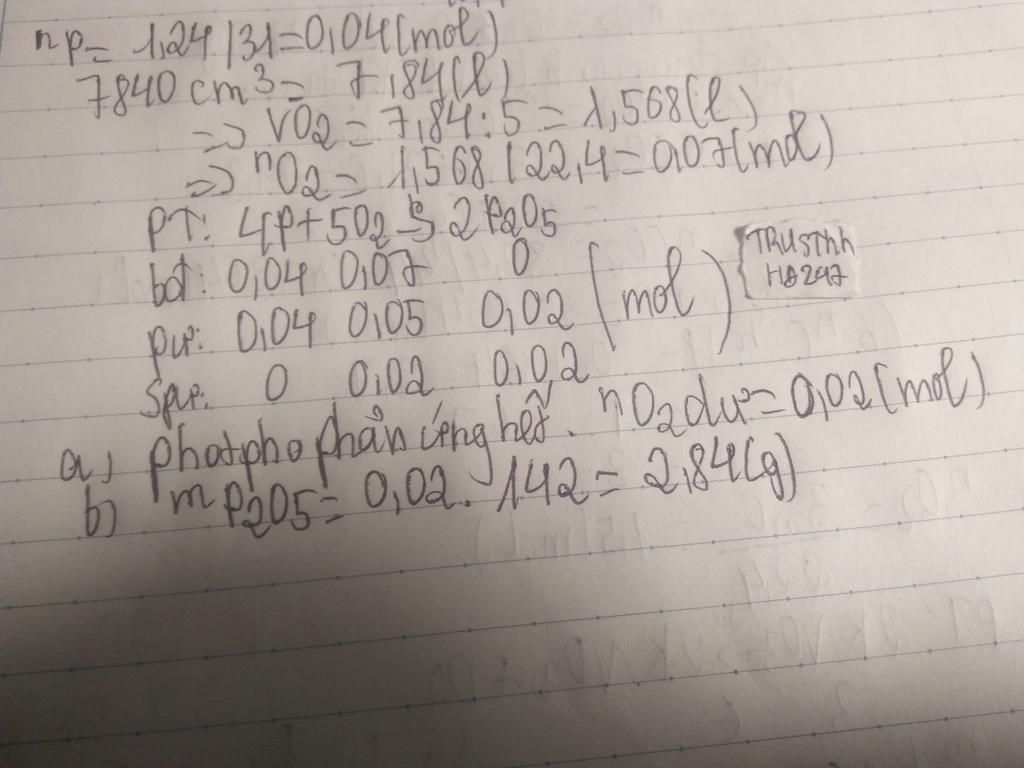 np= 1,24/31=0,04(mol)
7840 cm3= 7,84(l)
=> VO2= 7,84:5= 1,568(l)
=> nO2= 1,568/22,4=0,07(mol)
PT: 4P+5O2 to→ 2P2O5
bđ: 0,04 0,07 0
pư: 0,04 0,05 0,02 (mol)
Spư: 0 0,02 0,02
TRUSThh
HĐ247
a) photpho phản ứng hết. nO2dư=0,02(mol)
b) mP2O5= 0,02. 142= 2,84(g)